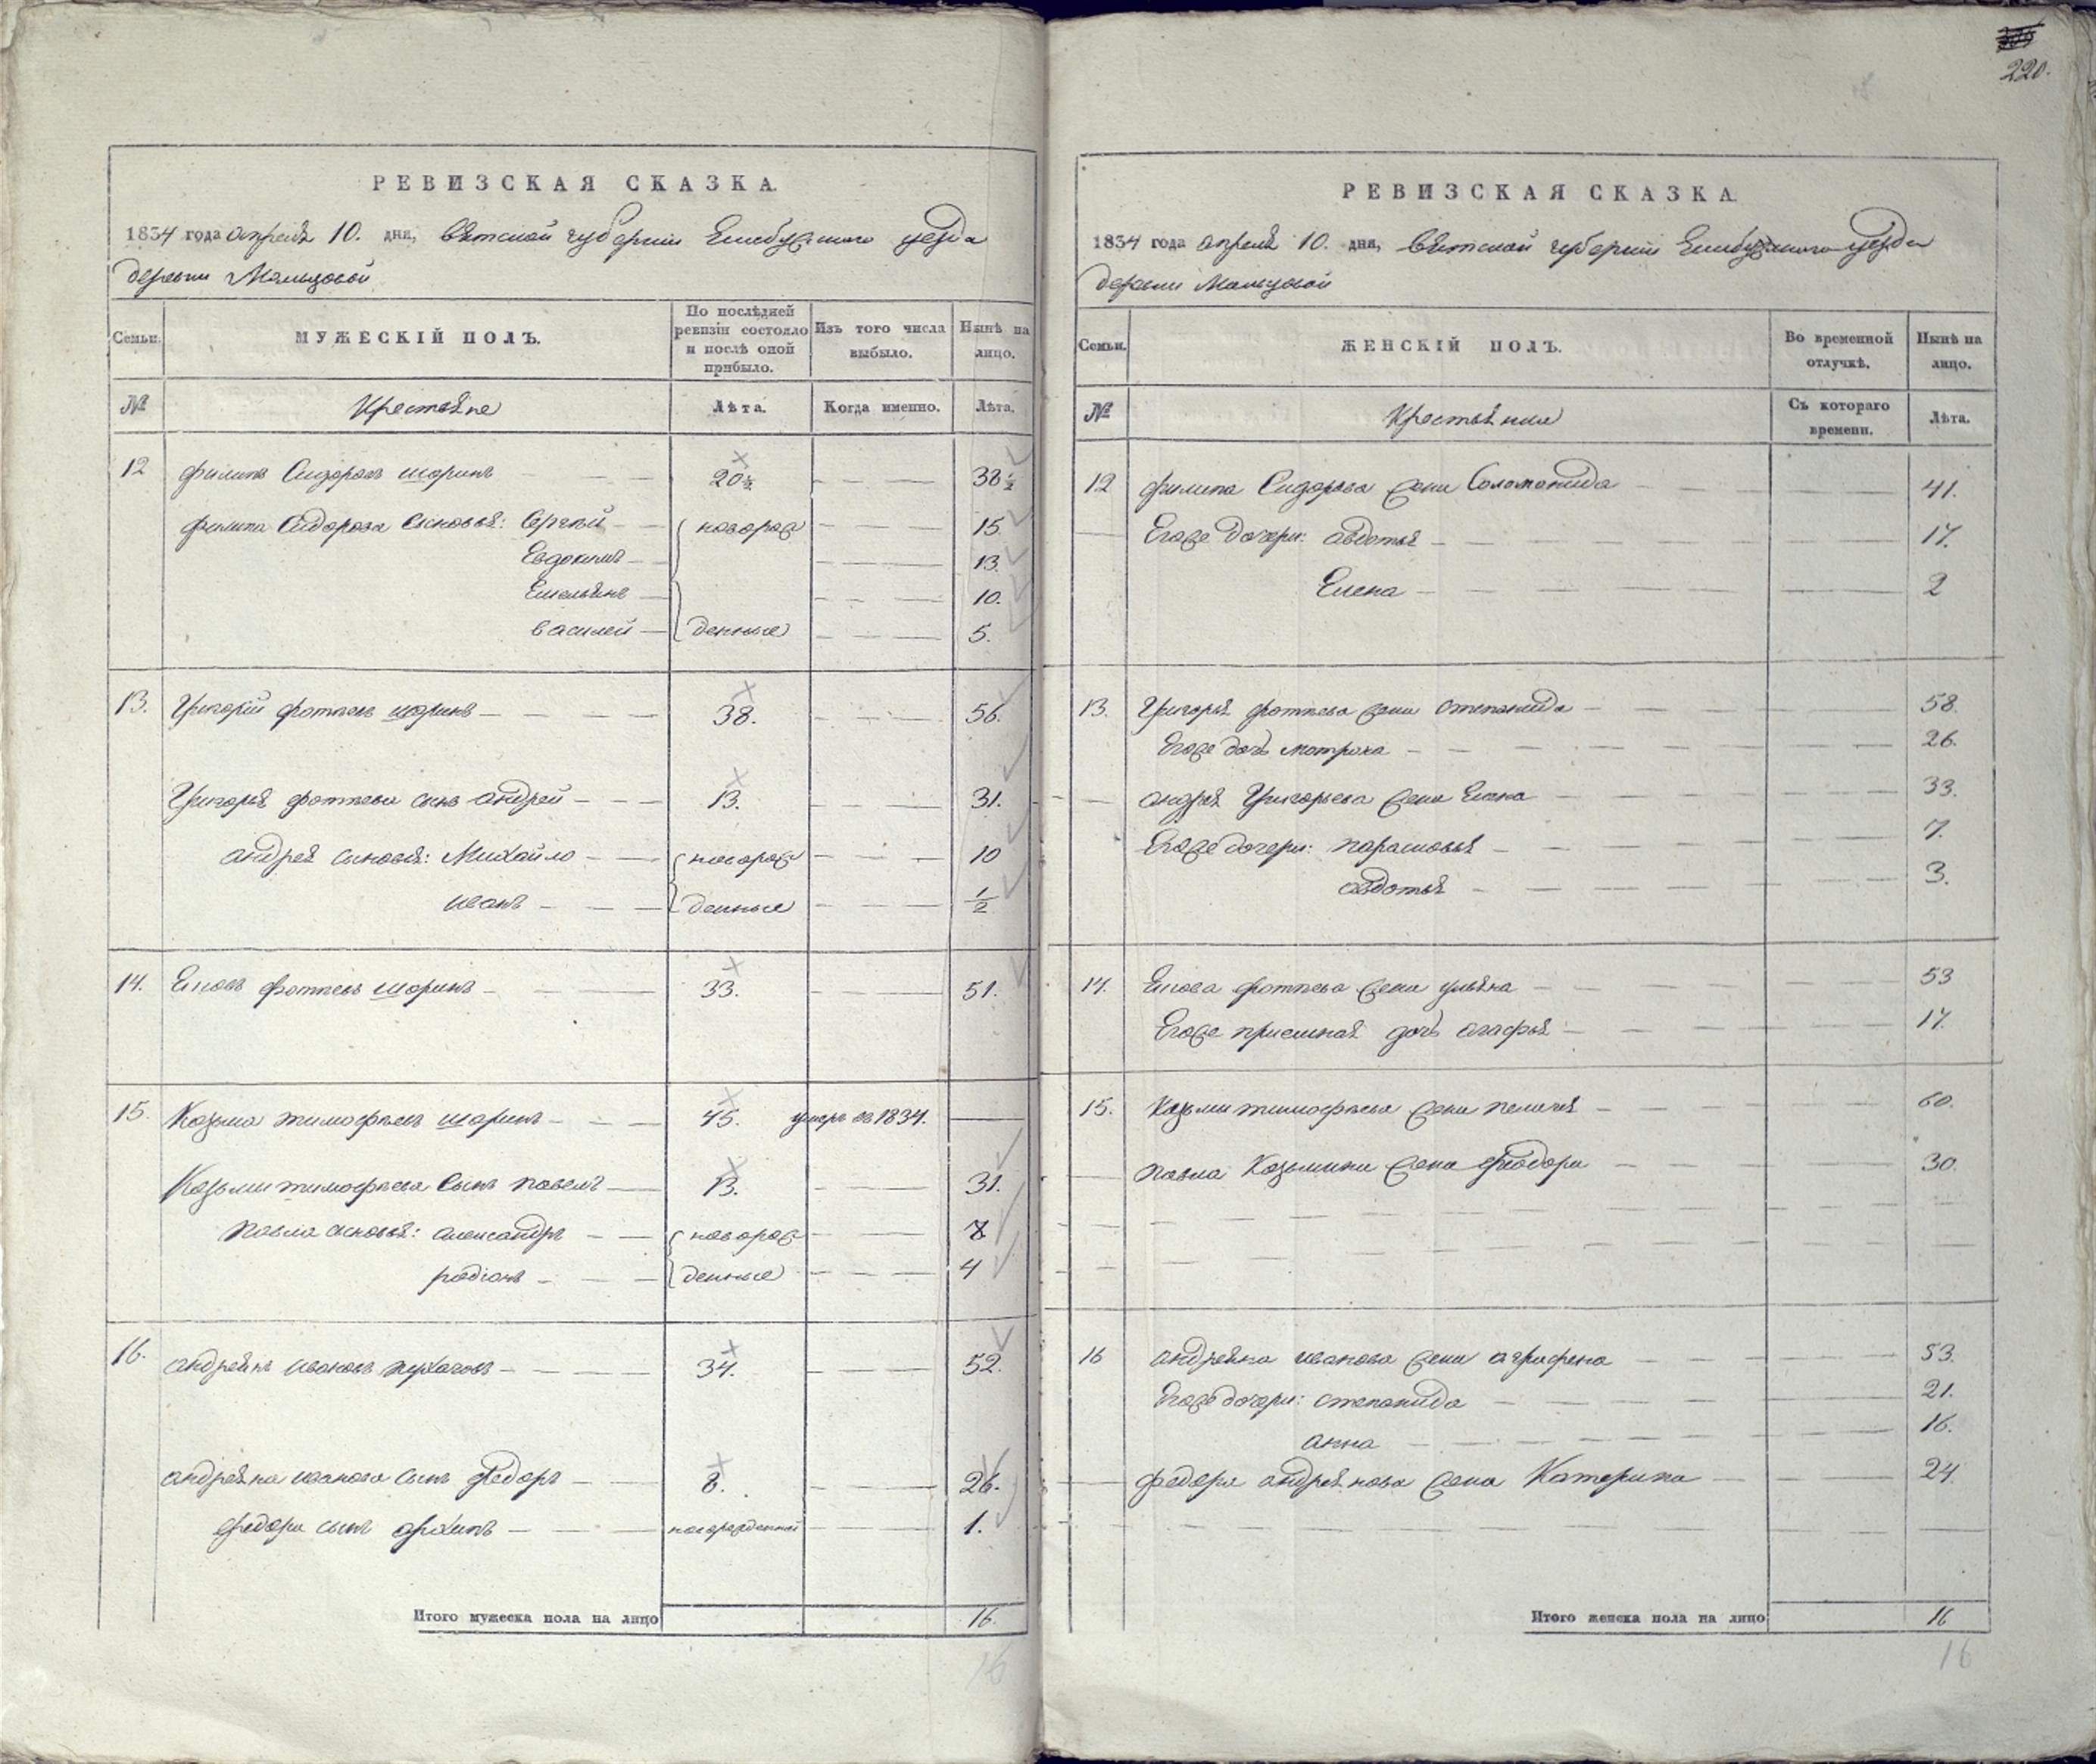 220.
РЕВИЗСКАЯ СКАЗКА.
1834 года апреля 10. дня, Вятской губернии Елабужского уезда
деревни Мальцовой
Семьи. МУЖЕСКІЙ ПОЛЪ. По послѣдней ревизіи состояло и послѣ оной прибыло. Изъ того числа выбыло. Нынѣ на лицо.
№ Крестьяне Лѣта. Когда именно. Лѣта.
12 Филипъ Сидоровъ Шоринъ 20½ 38½
Филипа Сидорова сыновья: Сергей новорож 15
Евдокимъ 13.
Емельянъ 10.
Василей денные 5.
13. Григорий Фотеевъ Шоринъ 38. 56.
Григорья Фотеева сынъ Андрей 13. 31.
Андрея сыновья: Михайло новорож 10
Иванъ денные ½
14. Фотеевъ Шоринъ 33. 51.
15. Козьма Тимофеевъ Шоринъ 45. умеръ въ 1834.
Козьмы Тимофеева сынъ Павелъ 13. 31.
Павла сыновья: Александръ новорож
Родіонъ денные 4
16. Андреянъ Ивановъ 34. 52.
Андреяна Иванова сынъ Федоръ 8. 26.
Федора сынъ Архипъ новорожденной 1.
Итого мужеска пола на лицо 16.
16
РЕВИЗСКАЯ СКАЗКА
1834 года апреля 10. дня, Вятской губернии Елабужского уезда
деревни Мальцовой
Семьи. ЖЕНСКІЙ ПОЛЪ. Во временной отлучкѣ. Нынѣ на лицо.
№ Крестьянки Съ котораго времени. Лѣта.
12 Филипа Сидорова жена Соломонида 41.
Его же дочери: Авдотья 17.
Елена 2
13. Григорья Фотеева жена Степанида 58.
Его же дочь Матрона 26.
Андрея Григорьева жена Елена 33.
Его же дочери: Парасковья 7.
Авдотья 3.
14. Фотеева жена Ульяна 53
Его же приемная дочь Агафья 17.
15. Козьмы Тимофеева жена Пелагея 60.
Павла Козьмина жена Федора 30.
16 Андреяна Иванова жена Аграфена 53.
Его же дочери: Степанида 21.
Анна 16.
Федора Андреянова жена Катерина 24.
Итого женска пола на лицо 16
16